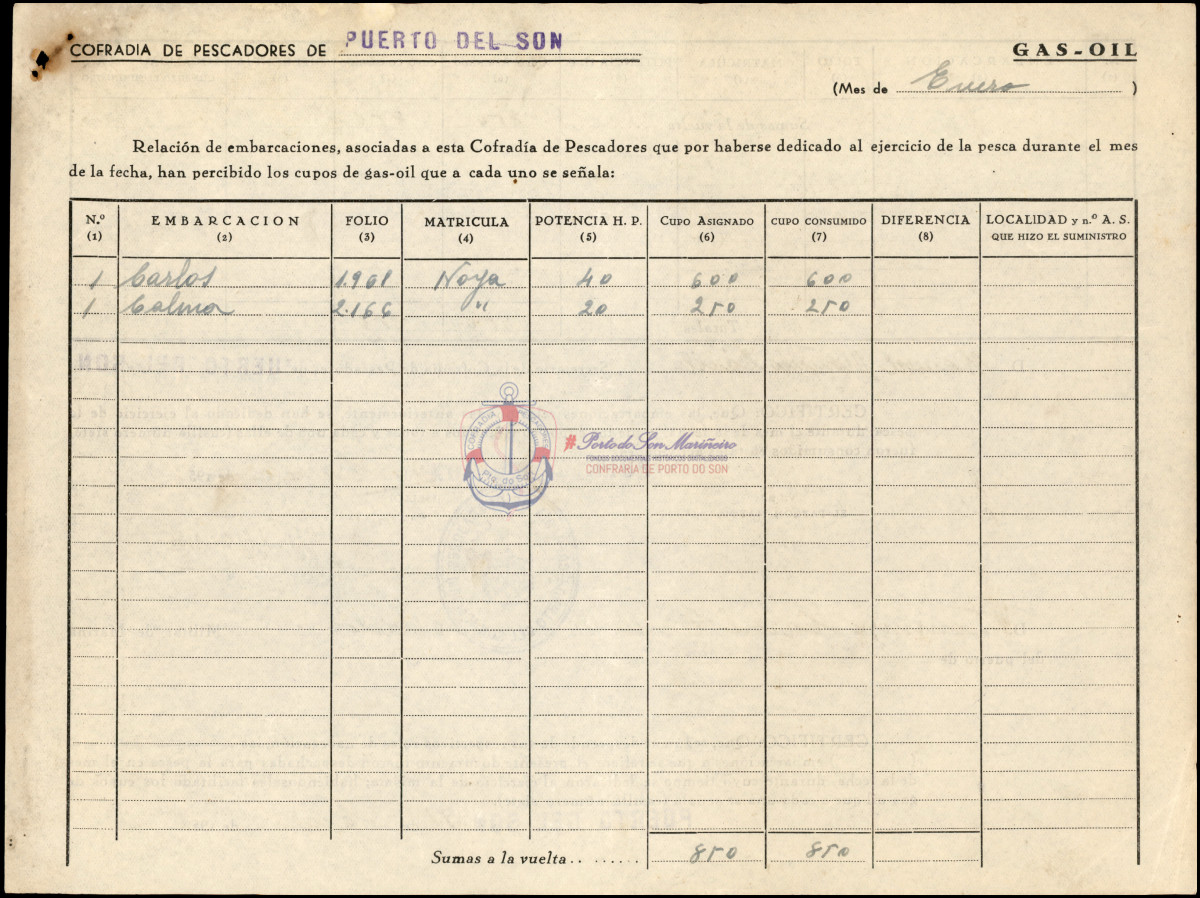 COFRADIA DE PESCADORES DE PUERTO DEL SON
GAS-OIL
(Mes de Enero)
Relación de embarcaciones, asociadas a esta Cofradía de Pescadores que por haberse dedicado al ejercicio de la pesca durante el mes
de la fecha, han percibido los cupos de gas-oil que a cada uno se señala:
N.º EMBARCACION FOLIO MATRICULA POTENCIA H. P. CUPO ASIGNADO CUPO CONSUMIDO DIFERENCIA LOCALIDAD y n.º A. S.
(1) (2) (3) (4) (5) (6) (7) (8) QUE HIZO EL SUMINISTRO
1 Carlos 1.901 Noya 40 600 600
1 Calma 2.166 " 20 250 250
COFRADIA PESCADORES
Pto. do Son
#Porto do Son Mariñeiro
FONDOS DOCUMENTAIS HISTÓRICOS DIXITALIZADOS
CONFRARÍA DE PORTO DO SON
Sumas a la vuelta........ 850 850